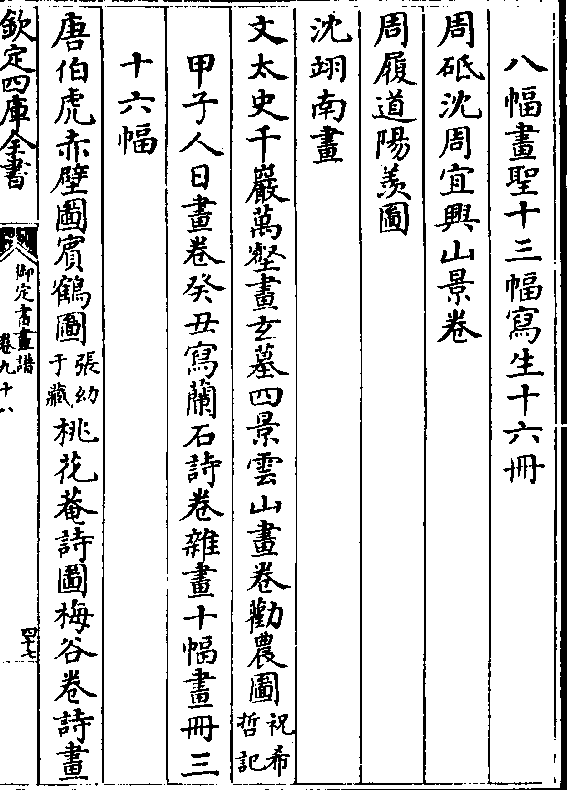 八幅畫聖十三幅寫生十六冊
周砥沈周宜興山景卷
周履道陽羨圖
沈翊南畫
文太史千巖萬壑畫玄墓四景雲山畫卷勸農圖祝希哲記
甲子人日畫卷癸丑寫蘭石詩卷雜畫十幅畫冊三
十六幅
唐伯虎赤壁圖賓鶴圖張幼于藏桃花菴詩圖梅谷卷詩畫
欽定四庫全書
御定書畫譜
卷九十八
四十七